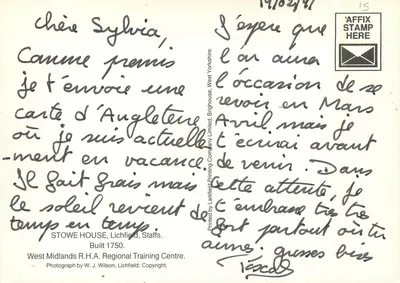 19/02/91
15
Chère Sylvia,
Comme promis
je t'envoie une
carte d'Angleterre
où je suis actuelle
-ment en vacance.
Il fait frais mais
le soleil revient de
temps en temps.
STOWE HOUSE, Lichfield, Staffs.
Built 1750.
West Midlands R.H.A. Regional Training Centre.
Photograph by W. J. Wilson, Lichfield: Copyright.
Printed by Lichfield Printing Company Limited, Brighouse, West Yorkshire.
'AFFIX
STAMP
HERE
J'espère que
l'on aura
l'occasion de se
revoir en Mars
Avril mais je
t'écrirai avant
de venir. Dans
cette attente, je
t'embrasse très très
fort partout où tu
aimes. grosses bises
Pascal